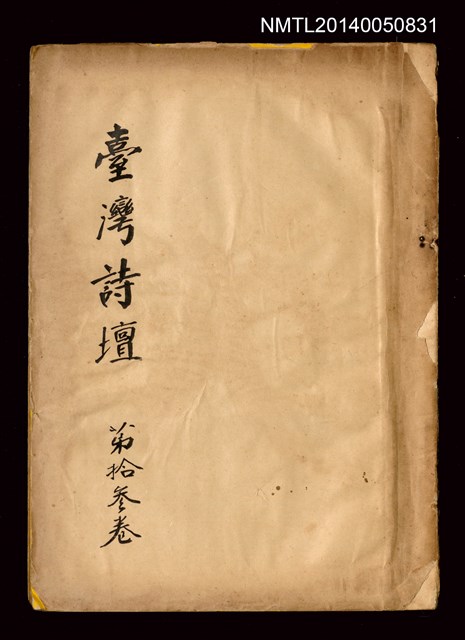 NMTL20140050831
臺灣詩壇
第拾叁卷